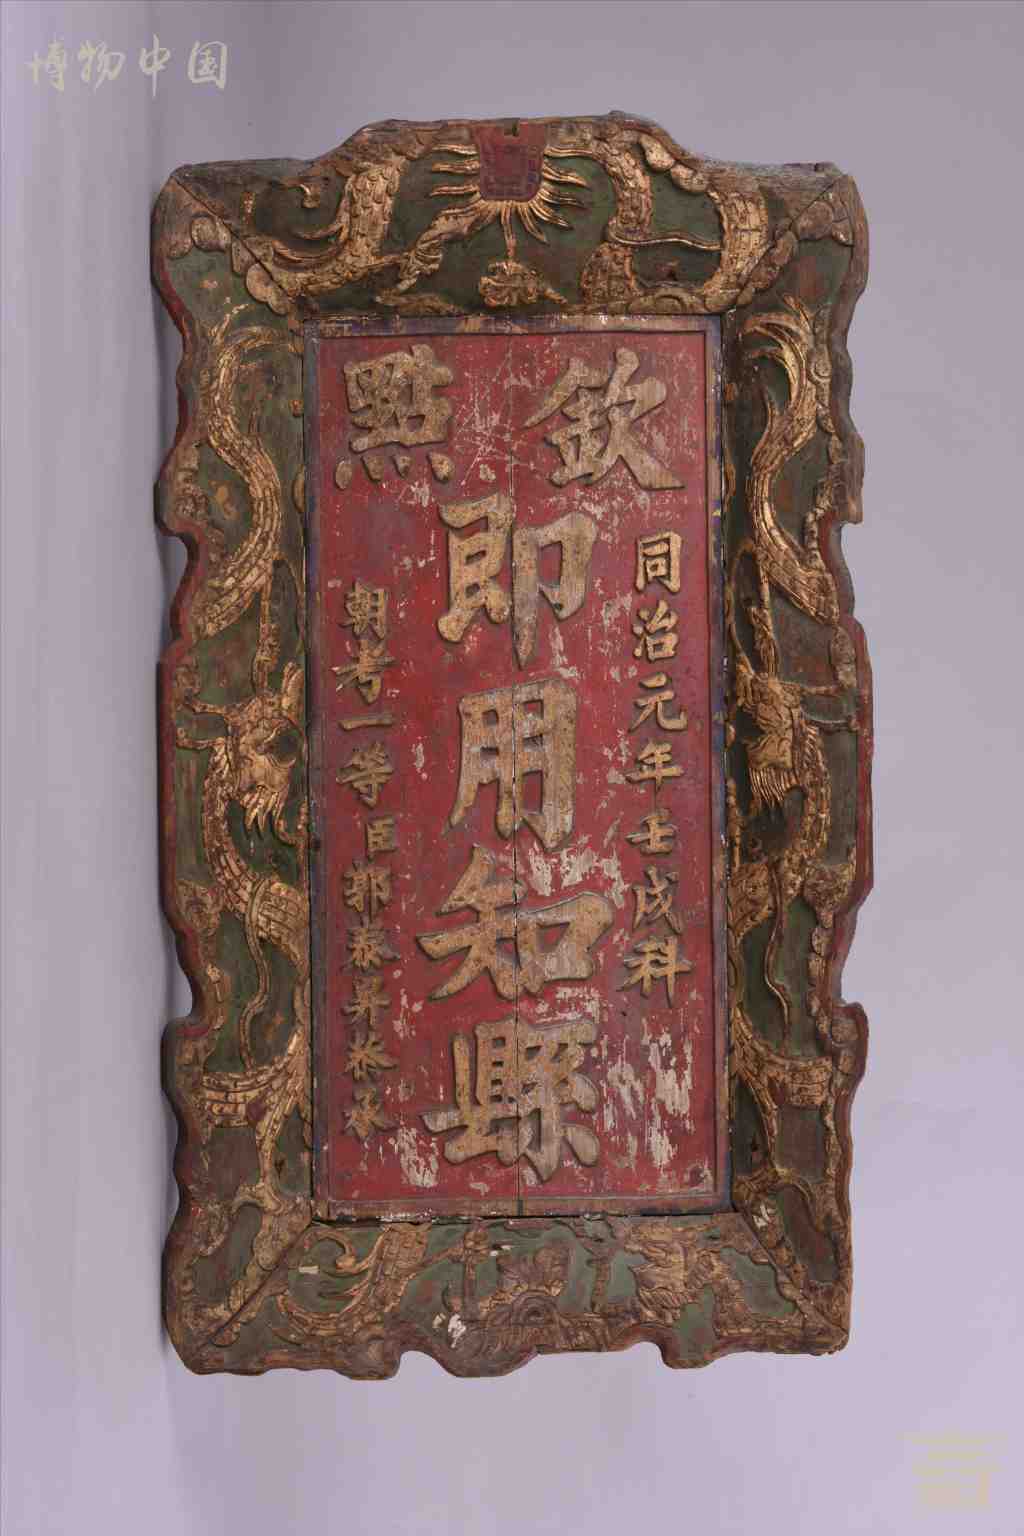 博物中国
欽點
同治元年壬戌科
即用知縣
朝考一等臣郭泰昇恭承